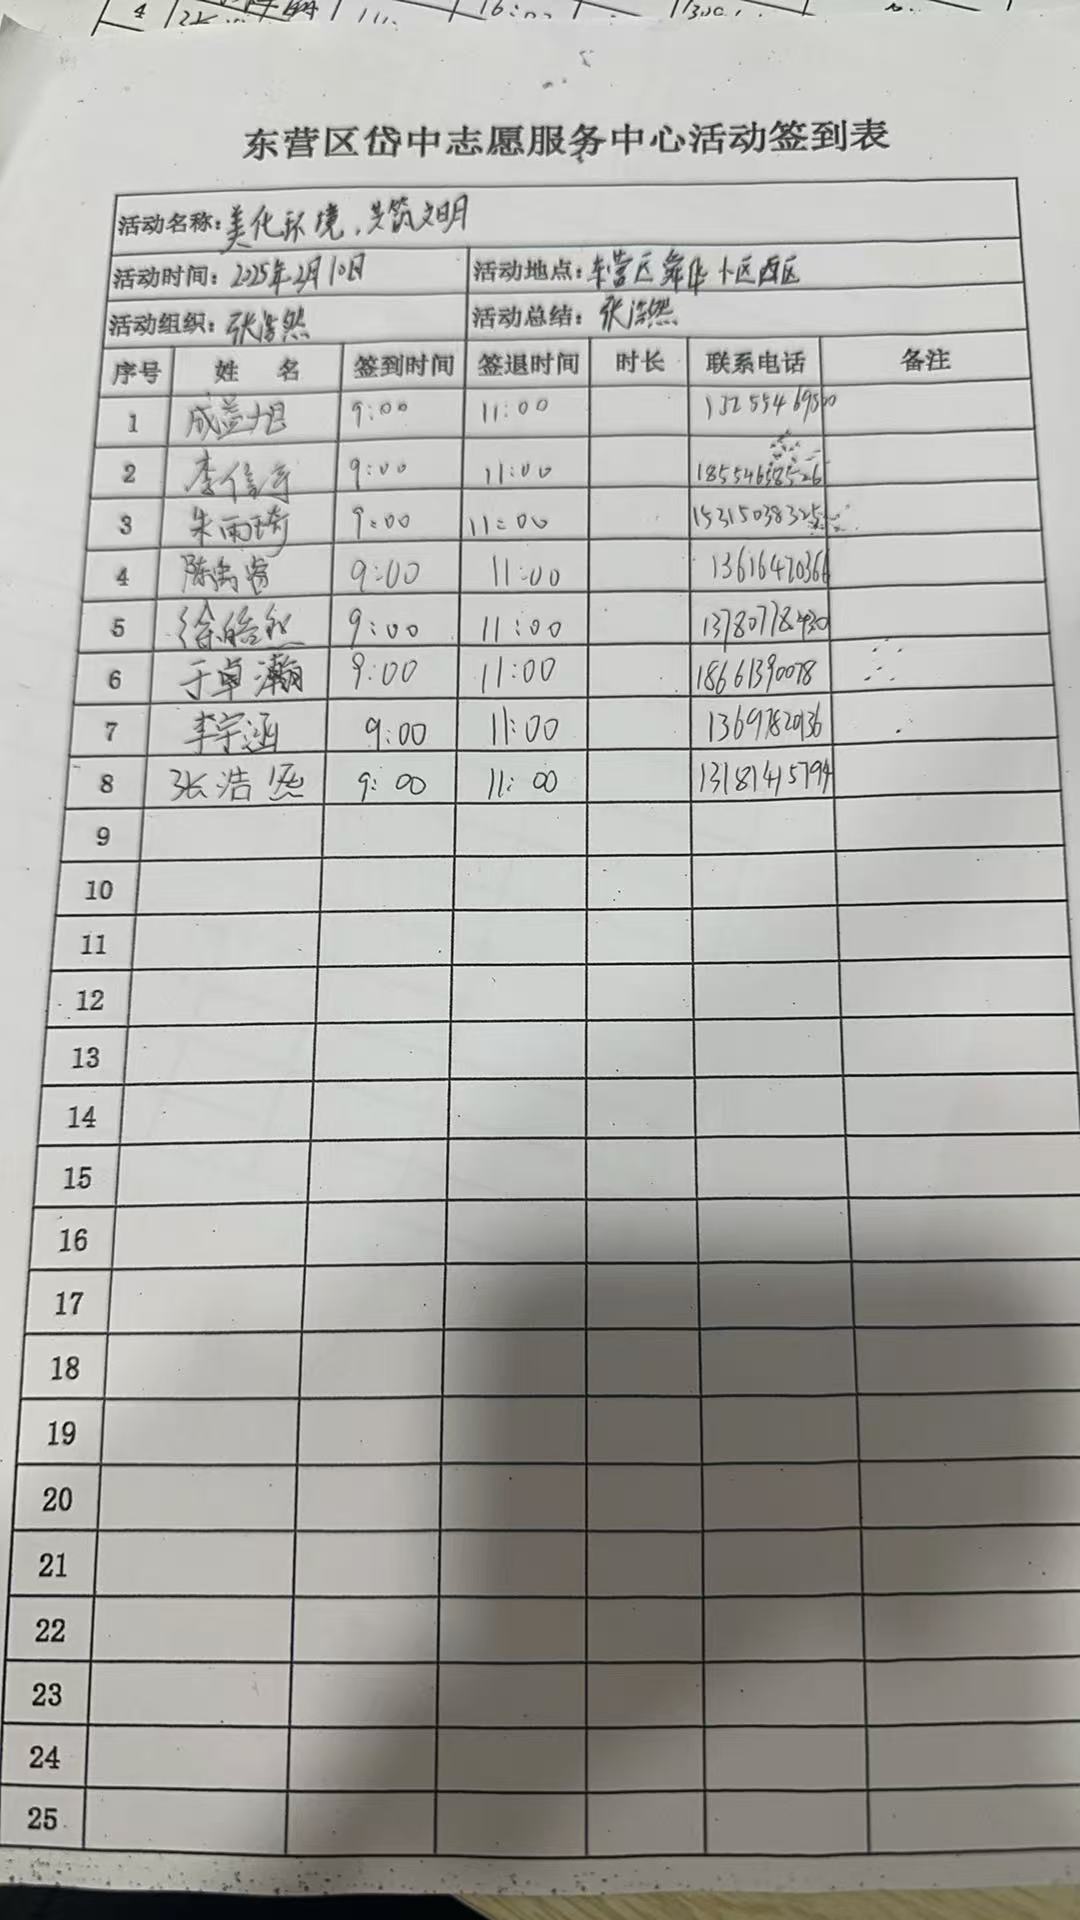 东营区岱中志愿服务中心活动签到表
活动名称：美化环境，共筑文明
活动时间：2025年2月10日 活动地点：东营区舜华小区西区
活动组织：张浩然 活动总结：张浩然
序号 姓 名 签到时间 签退时间 时长 联系电话 备注
1 成益旭 9:00 11:00
2 李信 9:00 11:00 18554658526
3 朱雨琦 9:00 11:00 15315038325
4 陈禹睿 9:00 11:00 13616470366
5 徐皓然 9:00 11:00 13780778430
6 于卓灏 9:00 11:00 18661390078
7 李宇涵 9:00 11:00 13697820136
8 张浩然 9:00 11:00 13181415794
9
10
11
12
13
14
15
16
17
18
19
20
21
22
23
24
25